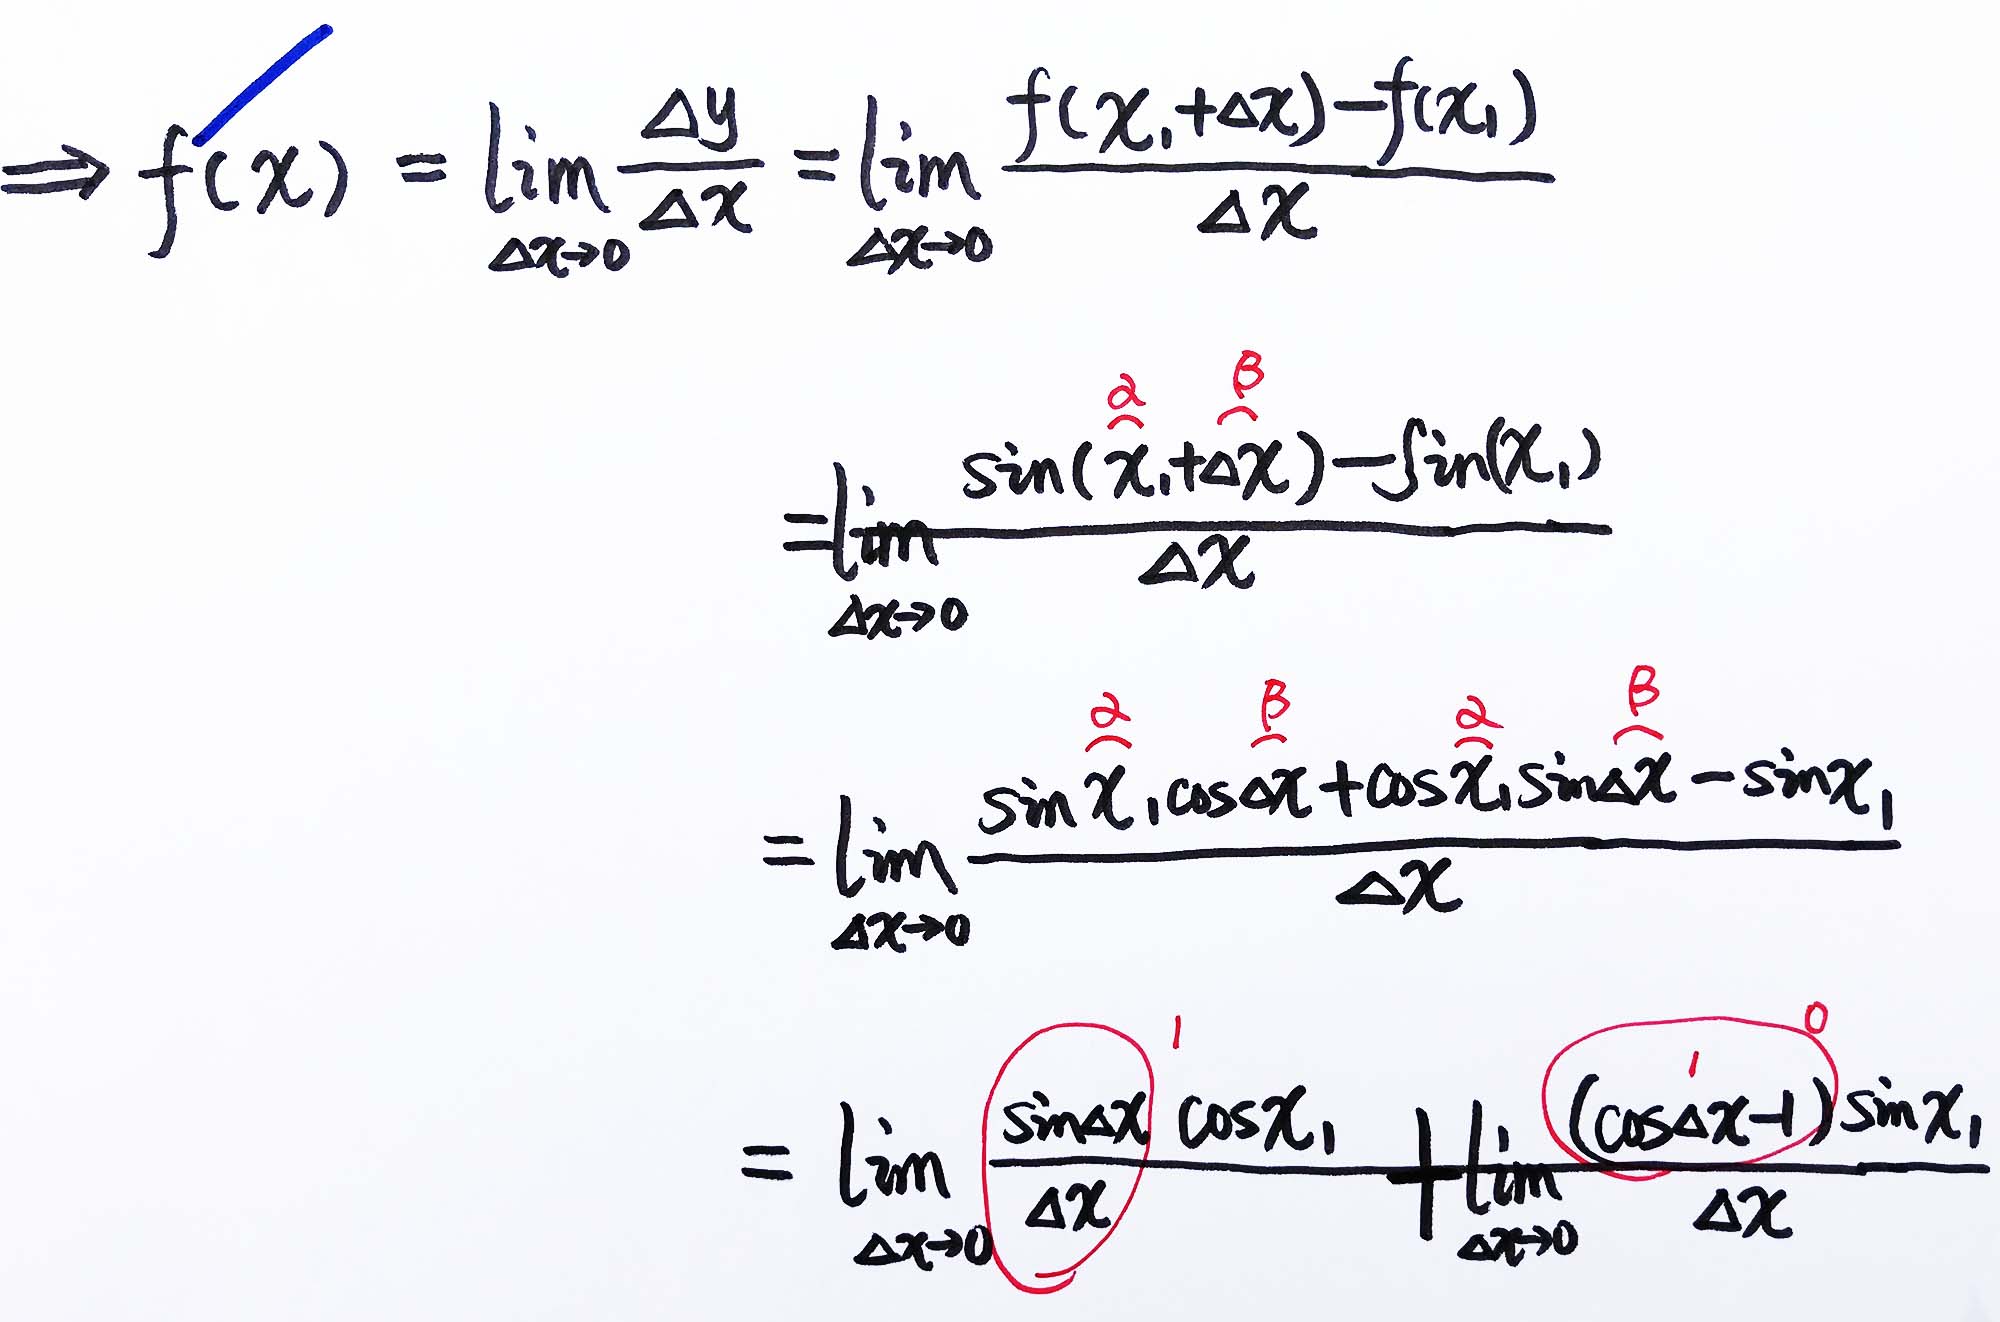 ⇒ f′(x) = lim_{Δx→0} Δy/Δx = lim_{Δx→0} (f(x₁+Δx)−f(x₁))/Δx
α β
= lim_{Δx→0} (sin(x₁+Δx)−sin(x₁))/Δx
α β α β
= lim_{Δx→0} (sin x₁ cosΔx + cos x₁ sinΔx − sin x₁)/Δx
1 1 0
= lim_{Δx→0} (sinΔx cos x₁)/Δx + lim_{Δx→0} ((cosΔx−1) sin x₁)/Δx